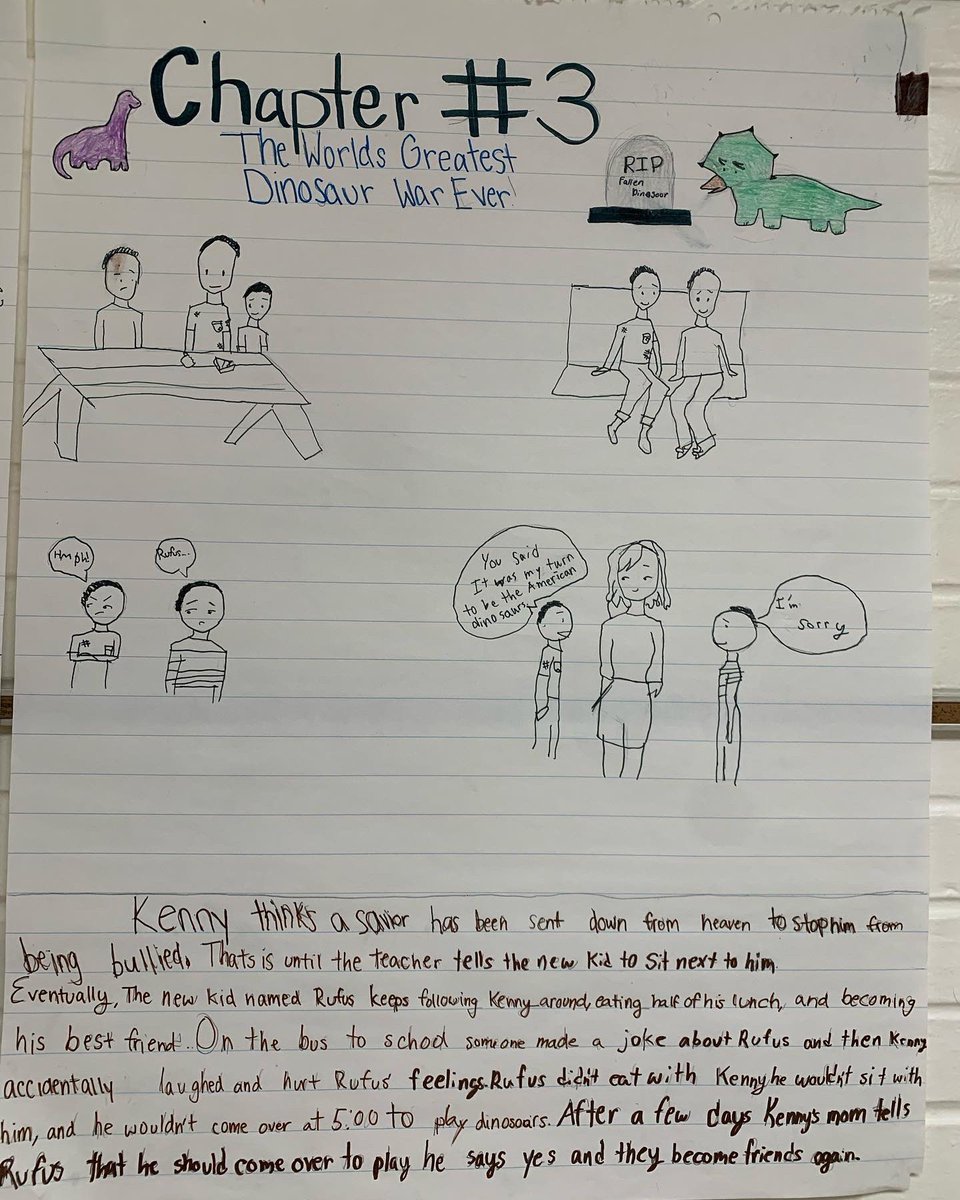 Chapter #3
The Worlds Greatest
Dinosaur War Ever!
RIP
Fallen
Dinosaur
Hmph!
Rufus...
You said
It was my turn
to be the American
dinosaurs
I'm
sorry
Kenny thinks a savior has been sent down from heaven to stop him from
being bullied. Thats is until the teacher tells the new kid to sit next to him.
Eventually, The new kid named Rufus keeps following Kenny around, eating half of his lunch, and becoming
his best friend. On the bus to school someone made a joke about Rufus and then Kenny
accidentally laughed and hurt Rufus' feelings. Rufus didn't eat with Kenny he wouldn't sit with
him, and he wouldn't come over at 5:00 to play dinosoars. After a few days Kenny's mom tells
Rufus that he should come over to play he says yes and they become friends again.